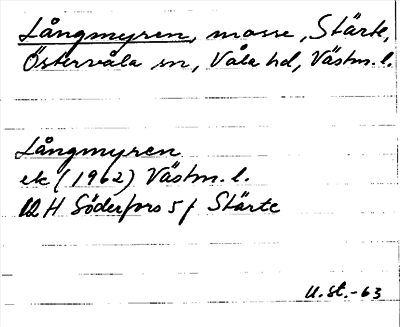 Långmyren, mosse, Stärte,
Östervåla sn, Våla hd, Västm. l.
Långmyren
ek (1962) Västm. l.
12 H Söderfors 5 f Stärte
U.St.-63